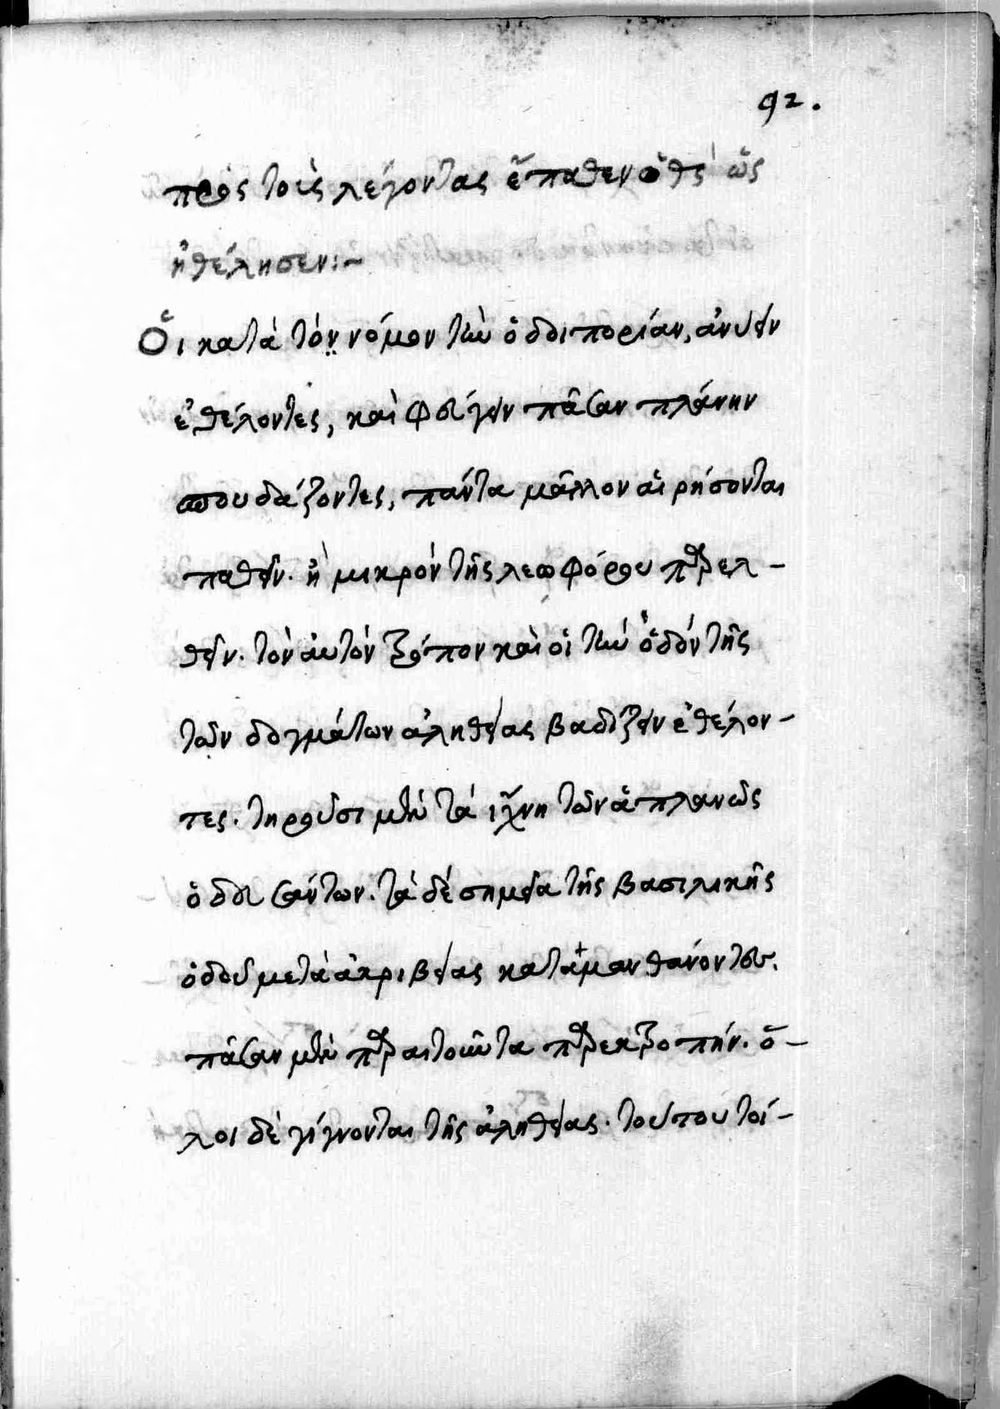 92.
πρὸς τοὺς λέγοντας ἔπαθεν ὁ θς ὡς
ἠθέλησεν:~
Οἱ κατὰ τὸν νόμον τὴν ὁδοιπορίαν, ἀνύειν
ἐθέλοντες, καὶ φεύγειν πᾶσαν πλάνην
σπουδάζοντες, πάντα μᾶλλον αἱρήσονται
παθεῖν. ἢ μικρὸν τῆς λεωφόρου παρελ-
θεῖν. τὸν αὐτὸν τρόπον καὶ οἱ τὴν ὁδὸν τῆς
τῶν δογμάτων ἀληθείας βαδίζειν ἐθέλον-
τες. τηροῦσι μὲν τὰ ἴχνη τῶν ἀπλανῶς
ὁδευσάντων. τὰ δὲ σημεῖα τῆς βασιλικῆς
ὁδοῦ μετὰ ἀκριβείας καταμανθάνοντες.
πᾶσαν μὲν παραιτοῦνται παρεκτροπήν. ὅ-
λοι δὲ γίγνονται τῆς ἀληθείας. τούτου τοί-